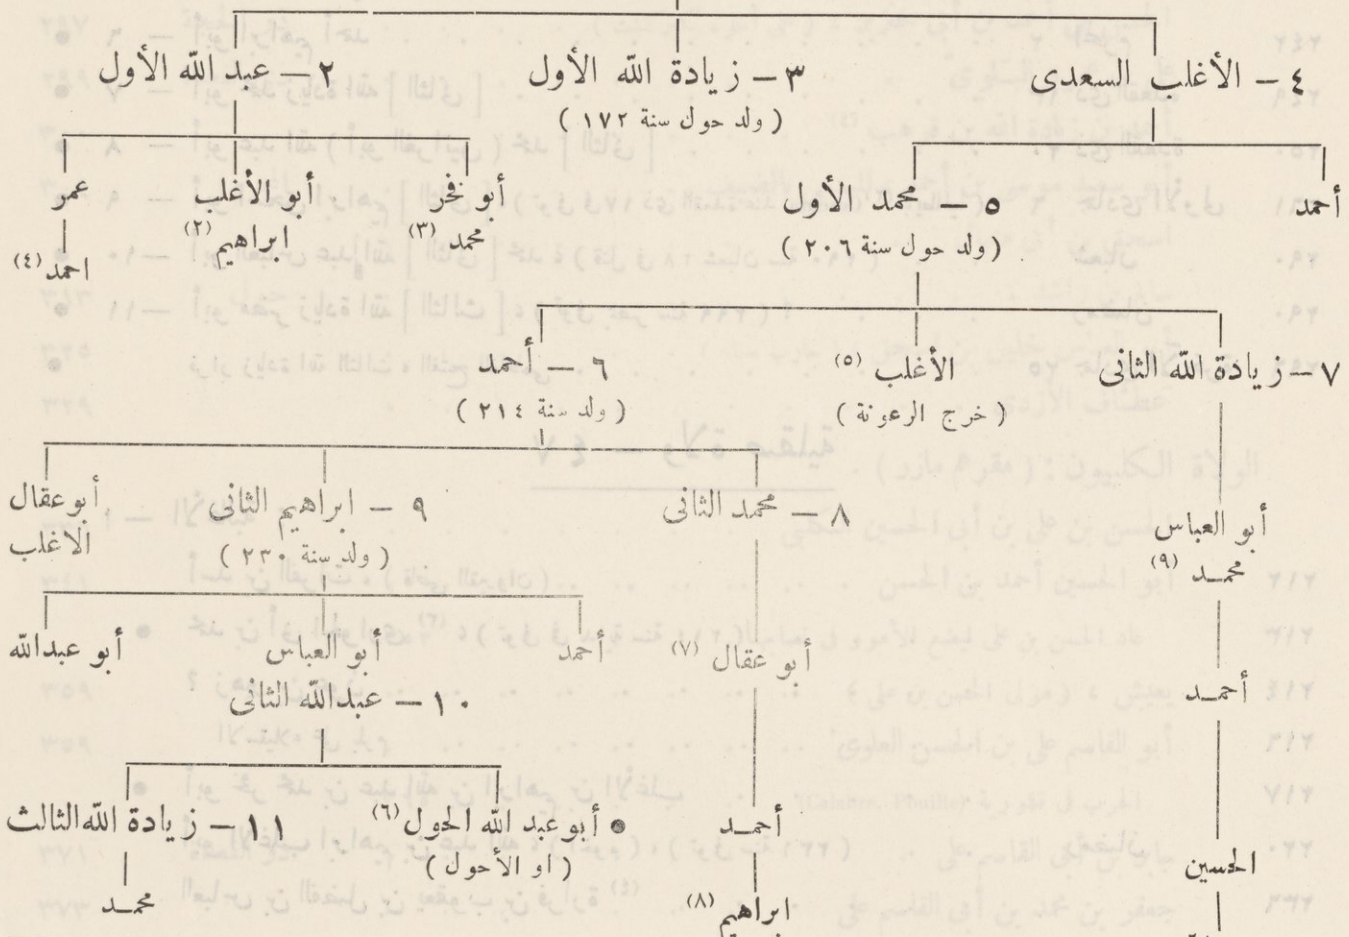 ٤ – الأغلب السعدى
٣ – زيادة الله الأول
٢ – عبد الله الأول
( ولد حول سنة ١٧٢ )
أحمد
٥ – محمد الأول
( ولد حول سنة ٢٠٦ )
أبو فخر
محمد (٣)
أبو الأغلب
ابراهيم (٢)
عمر
احمد (٤)
٧ – زيادة الله الثانى
الأغلب (٥)
( خرج الرعونة )
٦ – أحمد
( ولد سنة ٢١٤ )
أبو العباس
محمد (٩)
٨ – محمد الثانى
٩ – ابراهيم الثانى
( ولد سنة ٢٣٠ )
أبو عقال
الاغلب
أحمد
أبو عقال (٧)
أحمد
أبو العباس
١٠ – عبدالله الثانى
أبو عبدالله
الحسين
أحمد
ابراهيم (٨)
• أبو عبد الله الحول (٦)
( او الأحول )
١١ – زيادة الله الثالث
محمد